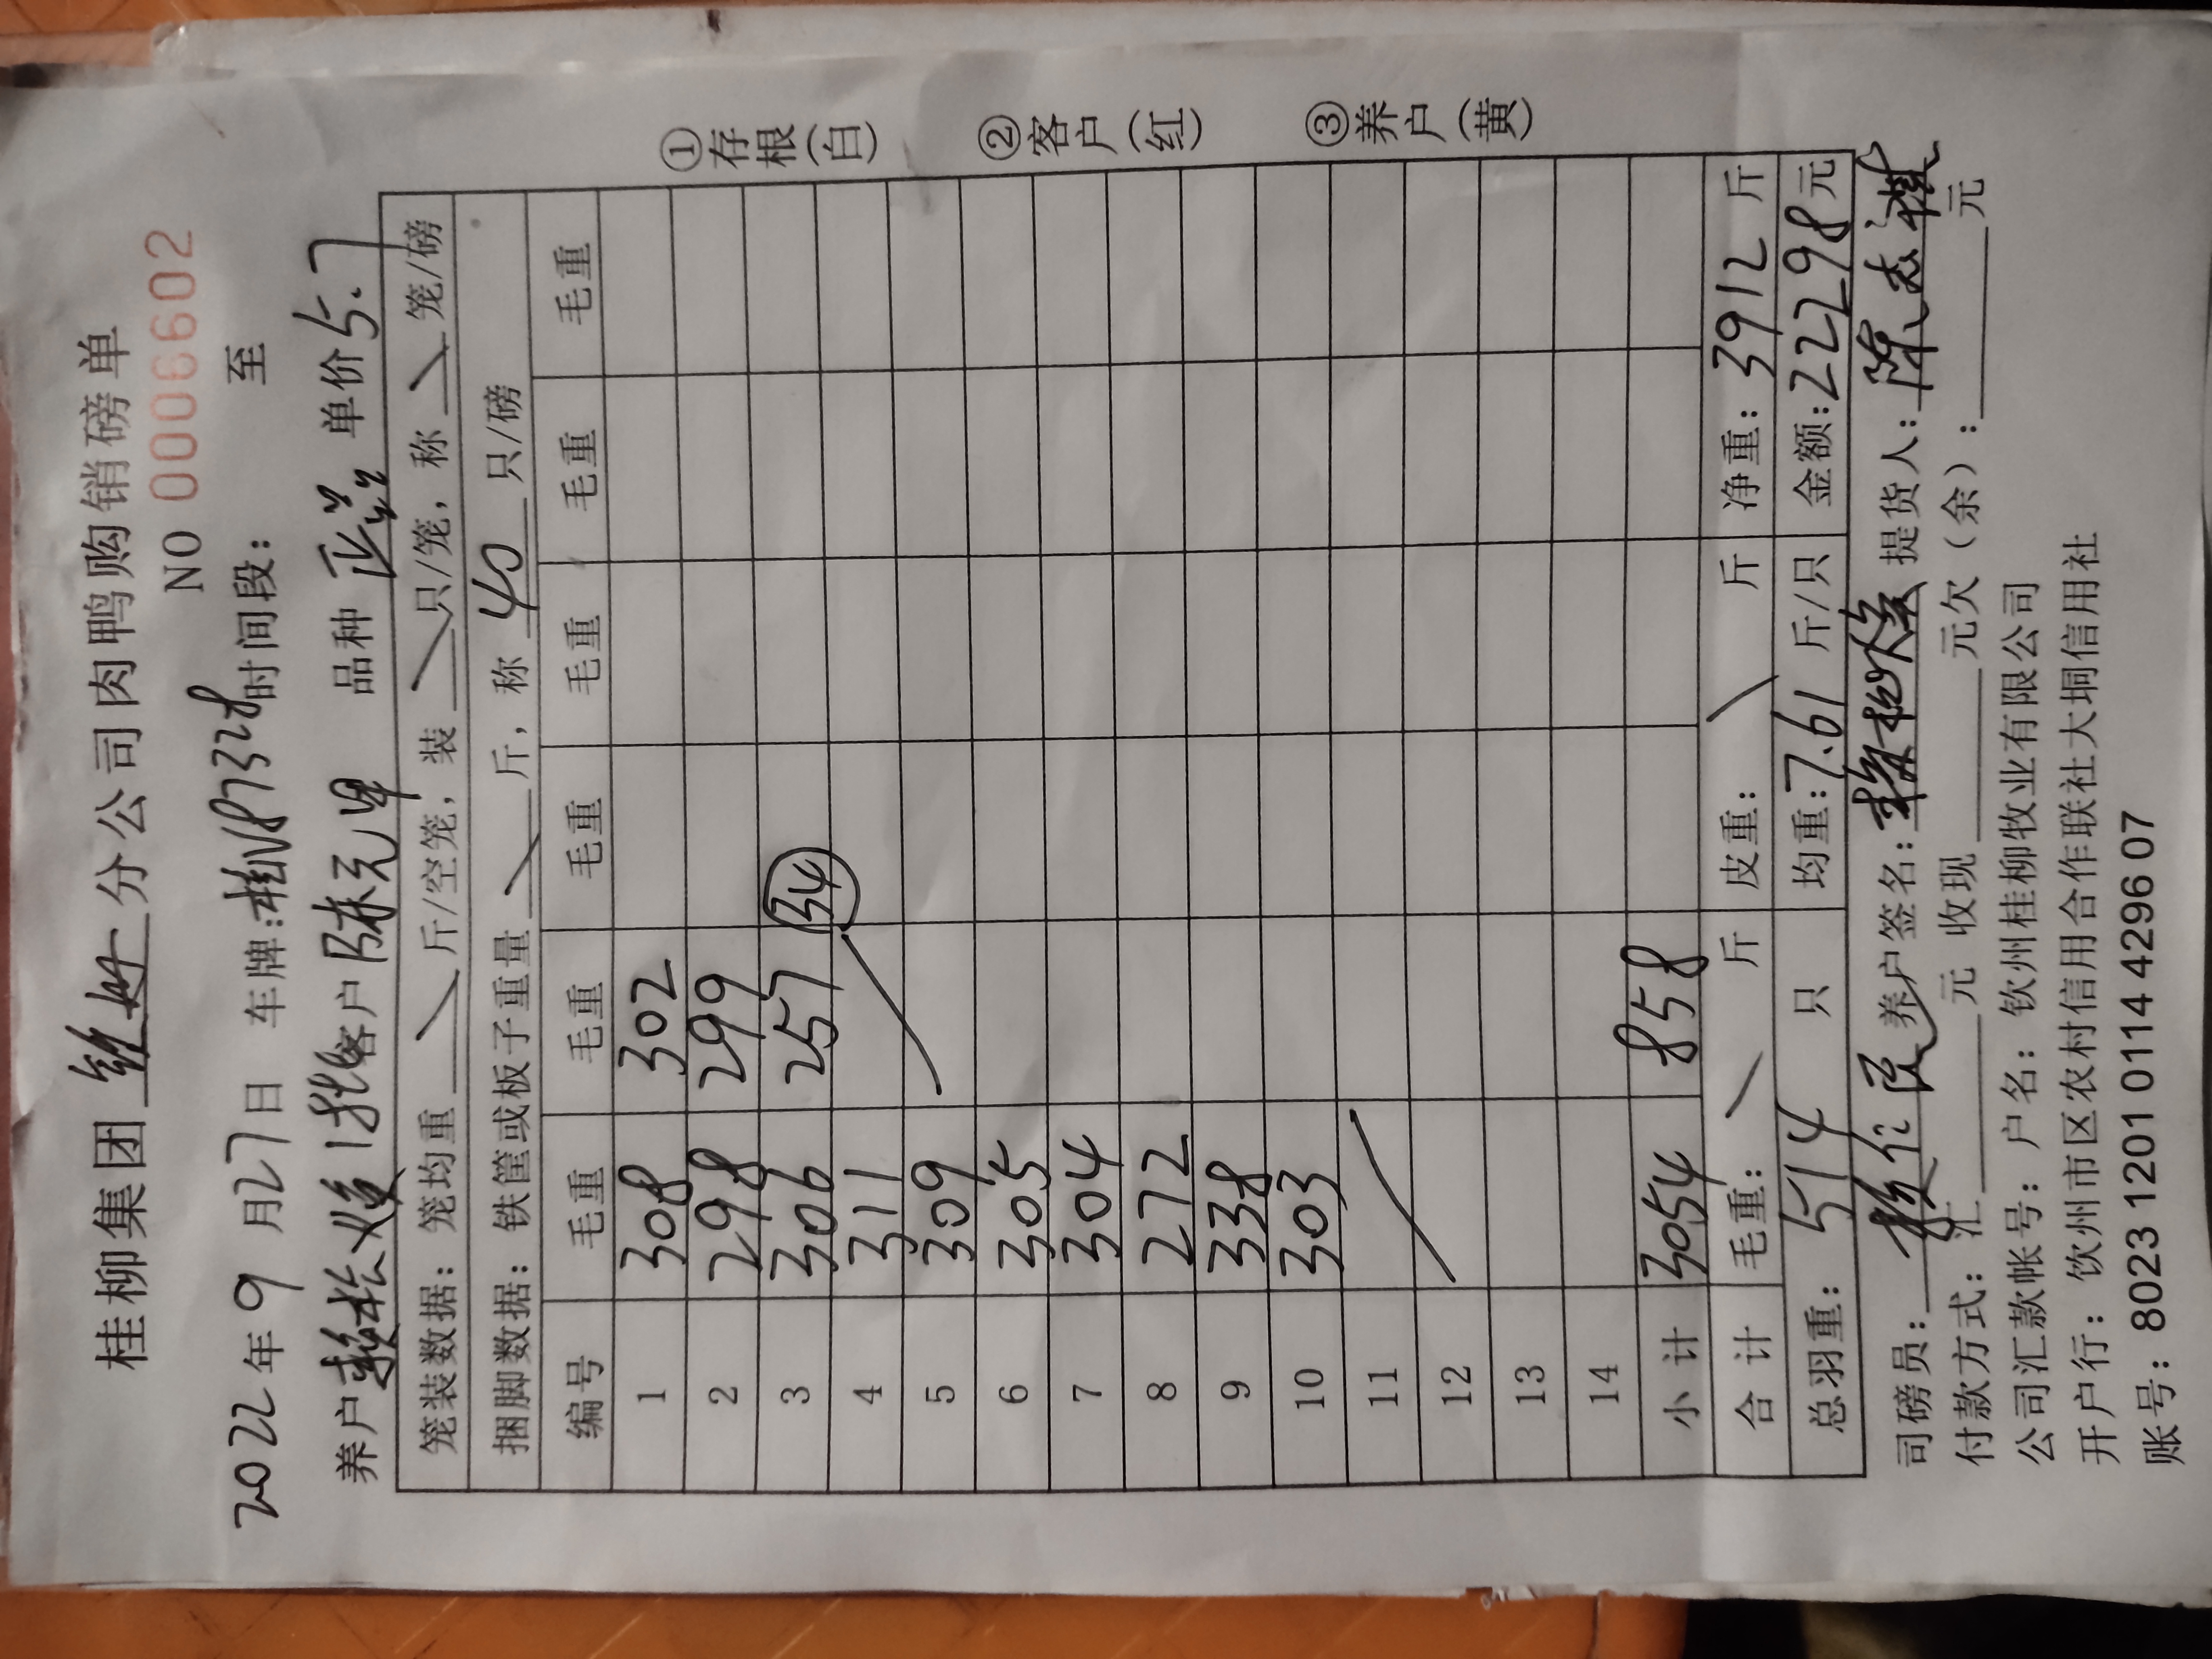 桂柳集团 分公司肉鸭购销磅单
NO 0006602
2022年9月27日 车牌:桂N87328时间段: 至
养户 客户陈元 品种 正 单价5.7
笼装数据:笼均重 斤/空笼,装 只/笼,称 笼/磅
捆脚数据:铁筐或板子重量 斤,称 40 只/磅
编号 毛重 毛重 毛重 毛重 毛重 毛重
1 308 302
2 298 299
3 306 257 34
4 311
5 309
6 305
7 304
8 272
9 338
10 303
11
12
13
14
小计 3054 858
合计 毛重: 斤 皮重: 斤 净重:3912 斤
总羽重:514 只 均重:7.61 斤/只 金额:22298元
司磅员: 养户签名: 提货人:陈志
付款方式:汇 元 收现 元欠(余): 元
公司汇款帐号:户名:钦州桂柳牧业有限公司
开户行:钦州市区农村信用合作联社大垌信用社
账号:8023 1201 0114 4296 07
①存根(白)
②客户(红)
③养户(黄)